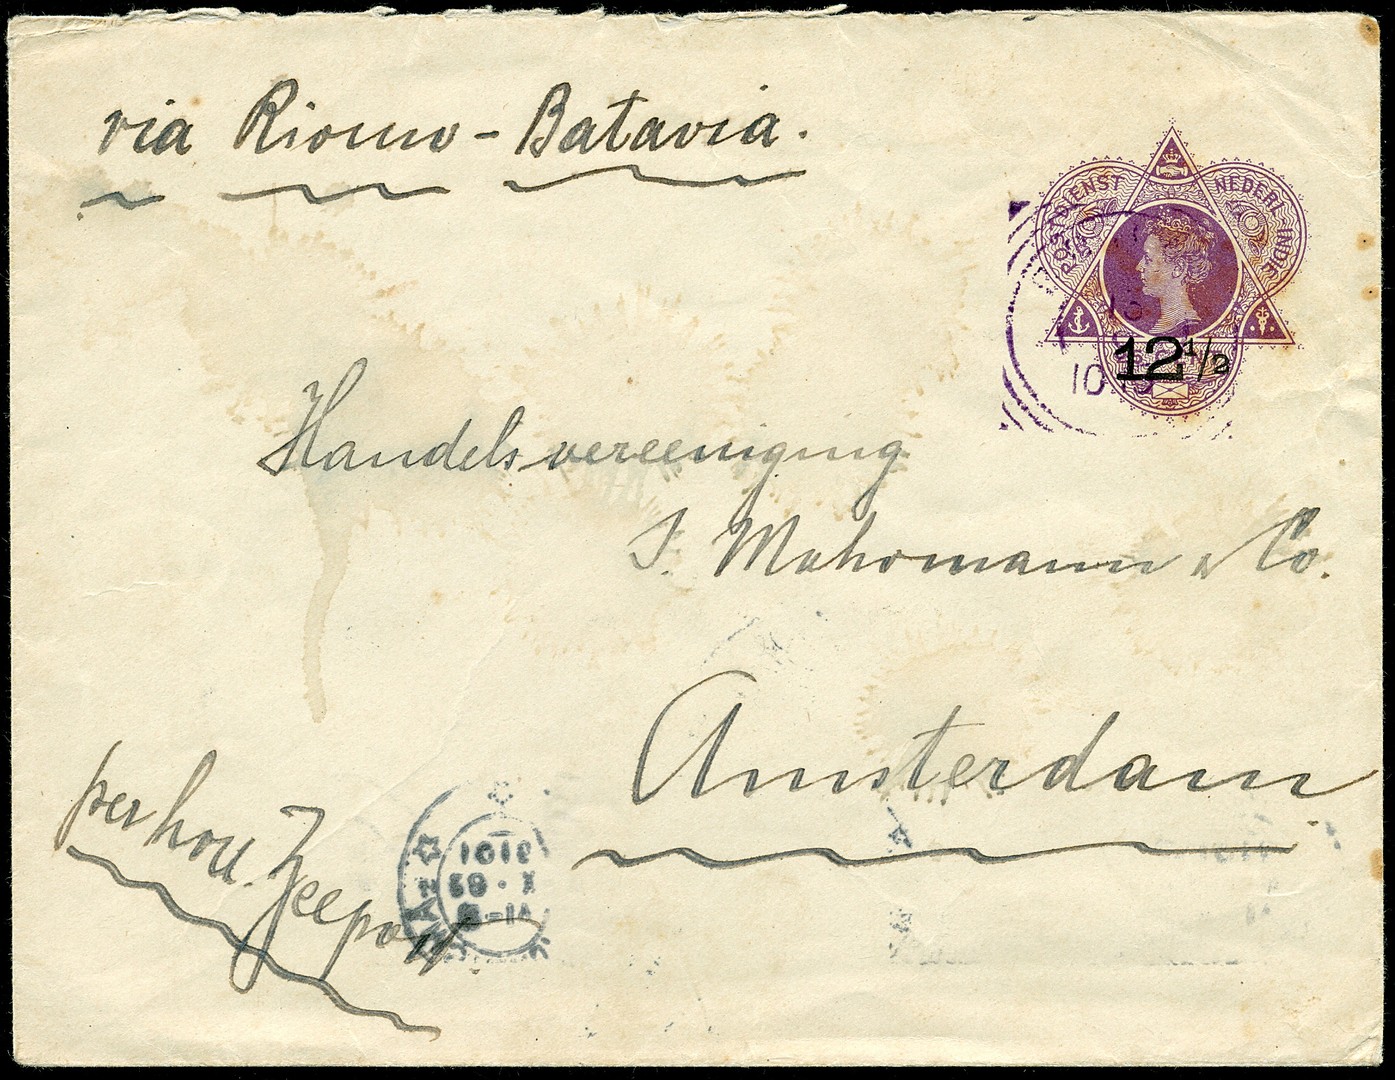 via Riouw - Batavia.
POSTDIENST NEDERL-INDIE
12 1/2
10
Handelsvereeniging
J. Mohrmann & Co.
Amsterdam
per holl. Zeepost